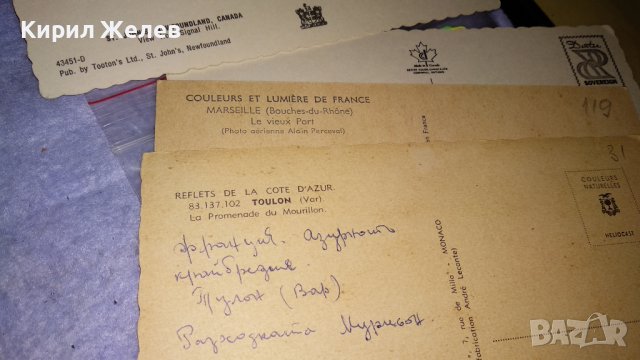 Кирил Желев
FOUNDLAND, CANADA
Signal Hill.
43451-D
Pub. by Tooton's Ltd., St. John's, Newfoundland
Dexter
SOVEREIGN
COULEURS ET LUMIÈRE DE FRANCE
MARSEILLE (Bouches-du-Rhône)
Le vieux Port
(Photo aérienne Alain Perceval)
119
81
REFLETS DE LA COTE D'AZUR
83.137.102 TOULON (Var)
La Promenade du Mourillon.
COULEURS
NATURELLES
HELIOCAST
Франция. Азурното
крайбрежие.
Тулон (Вар).
Разходката Мурийон.
7, rue de Millo - MONACO
André Leconte)
BAZAR.BG